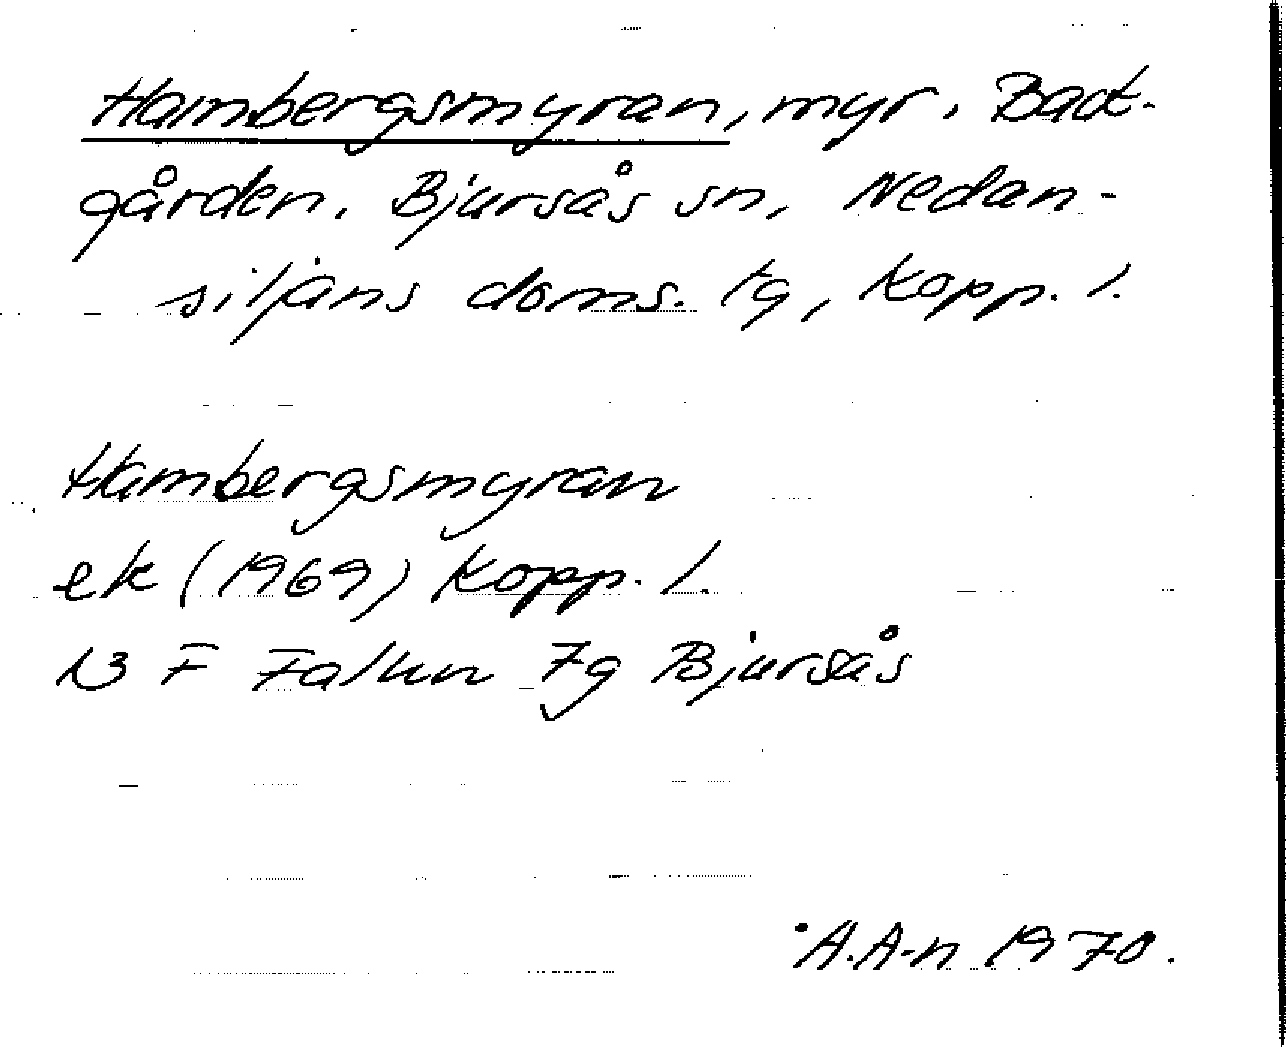 Hambergsmyran, myr. Bast-
gården. Bjursås sn, Nedan-
siljans doms. tg, Kopp. l.
Hambergsmyran
ek (1969) Kopp. l.
13 F Falun 7g Bjursås
A.A-n 1970.